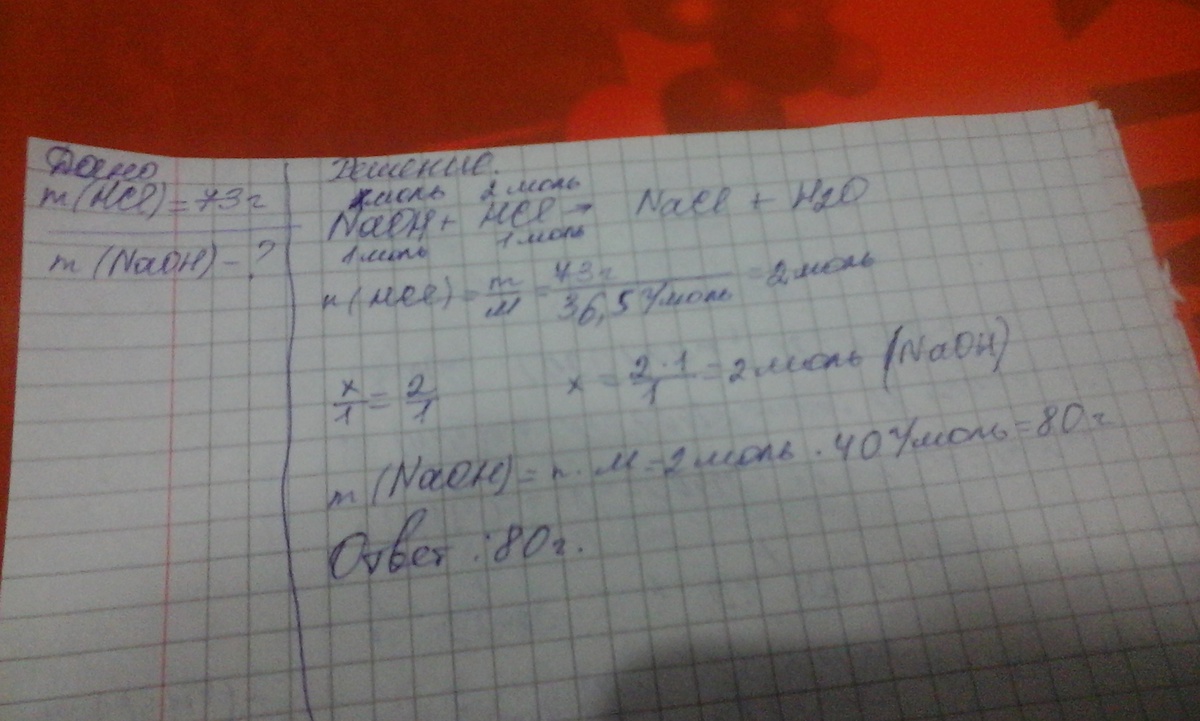 Дано
m (HCl) = 73 г
m (NaOH) - ?
Решение.
x моль 2 моль
NaOH + HCl → NaCl + H2O
1 моль 1 моль
n (HCl) = m/M = 73 г/36,5 г/моль = 2 моль
x/1 = 2/1 x = 2·1/1 = 2 моль (NaOH)
m (NaOH) = n · M = 2 моль · 40 г/моль = 80 г
Ответ : 80 г.